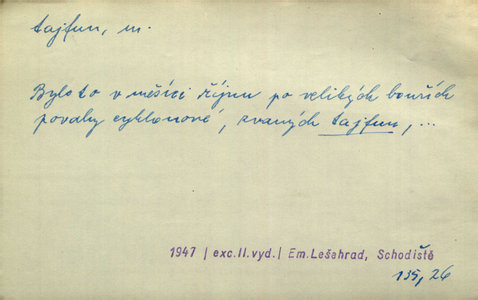 tajfun, m.
Bylo to v měsíci říjnu po velikých bouřích
povahy cyklonové, zvaných tajfun, ...
1947 / exc. II. vyd. / Em. Lešehrad, Schodiště
135, 26